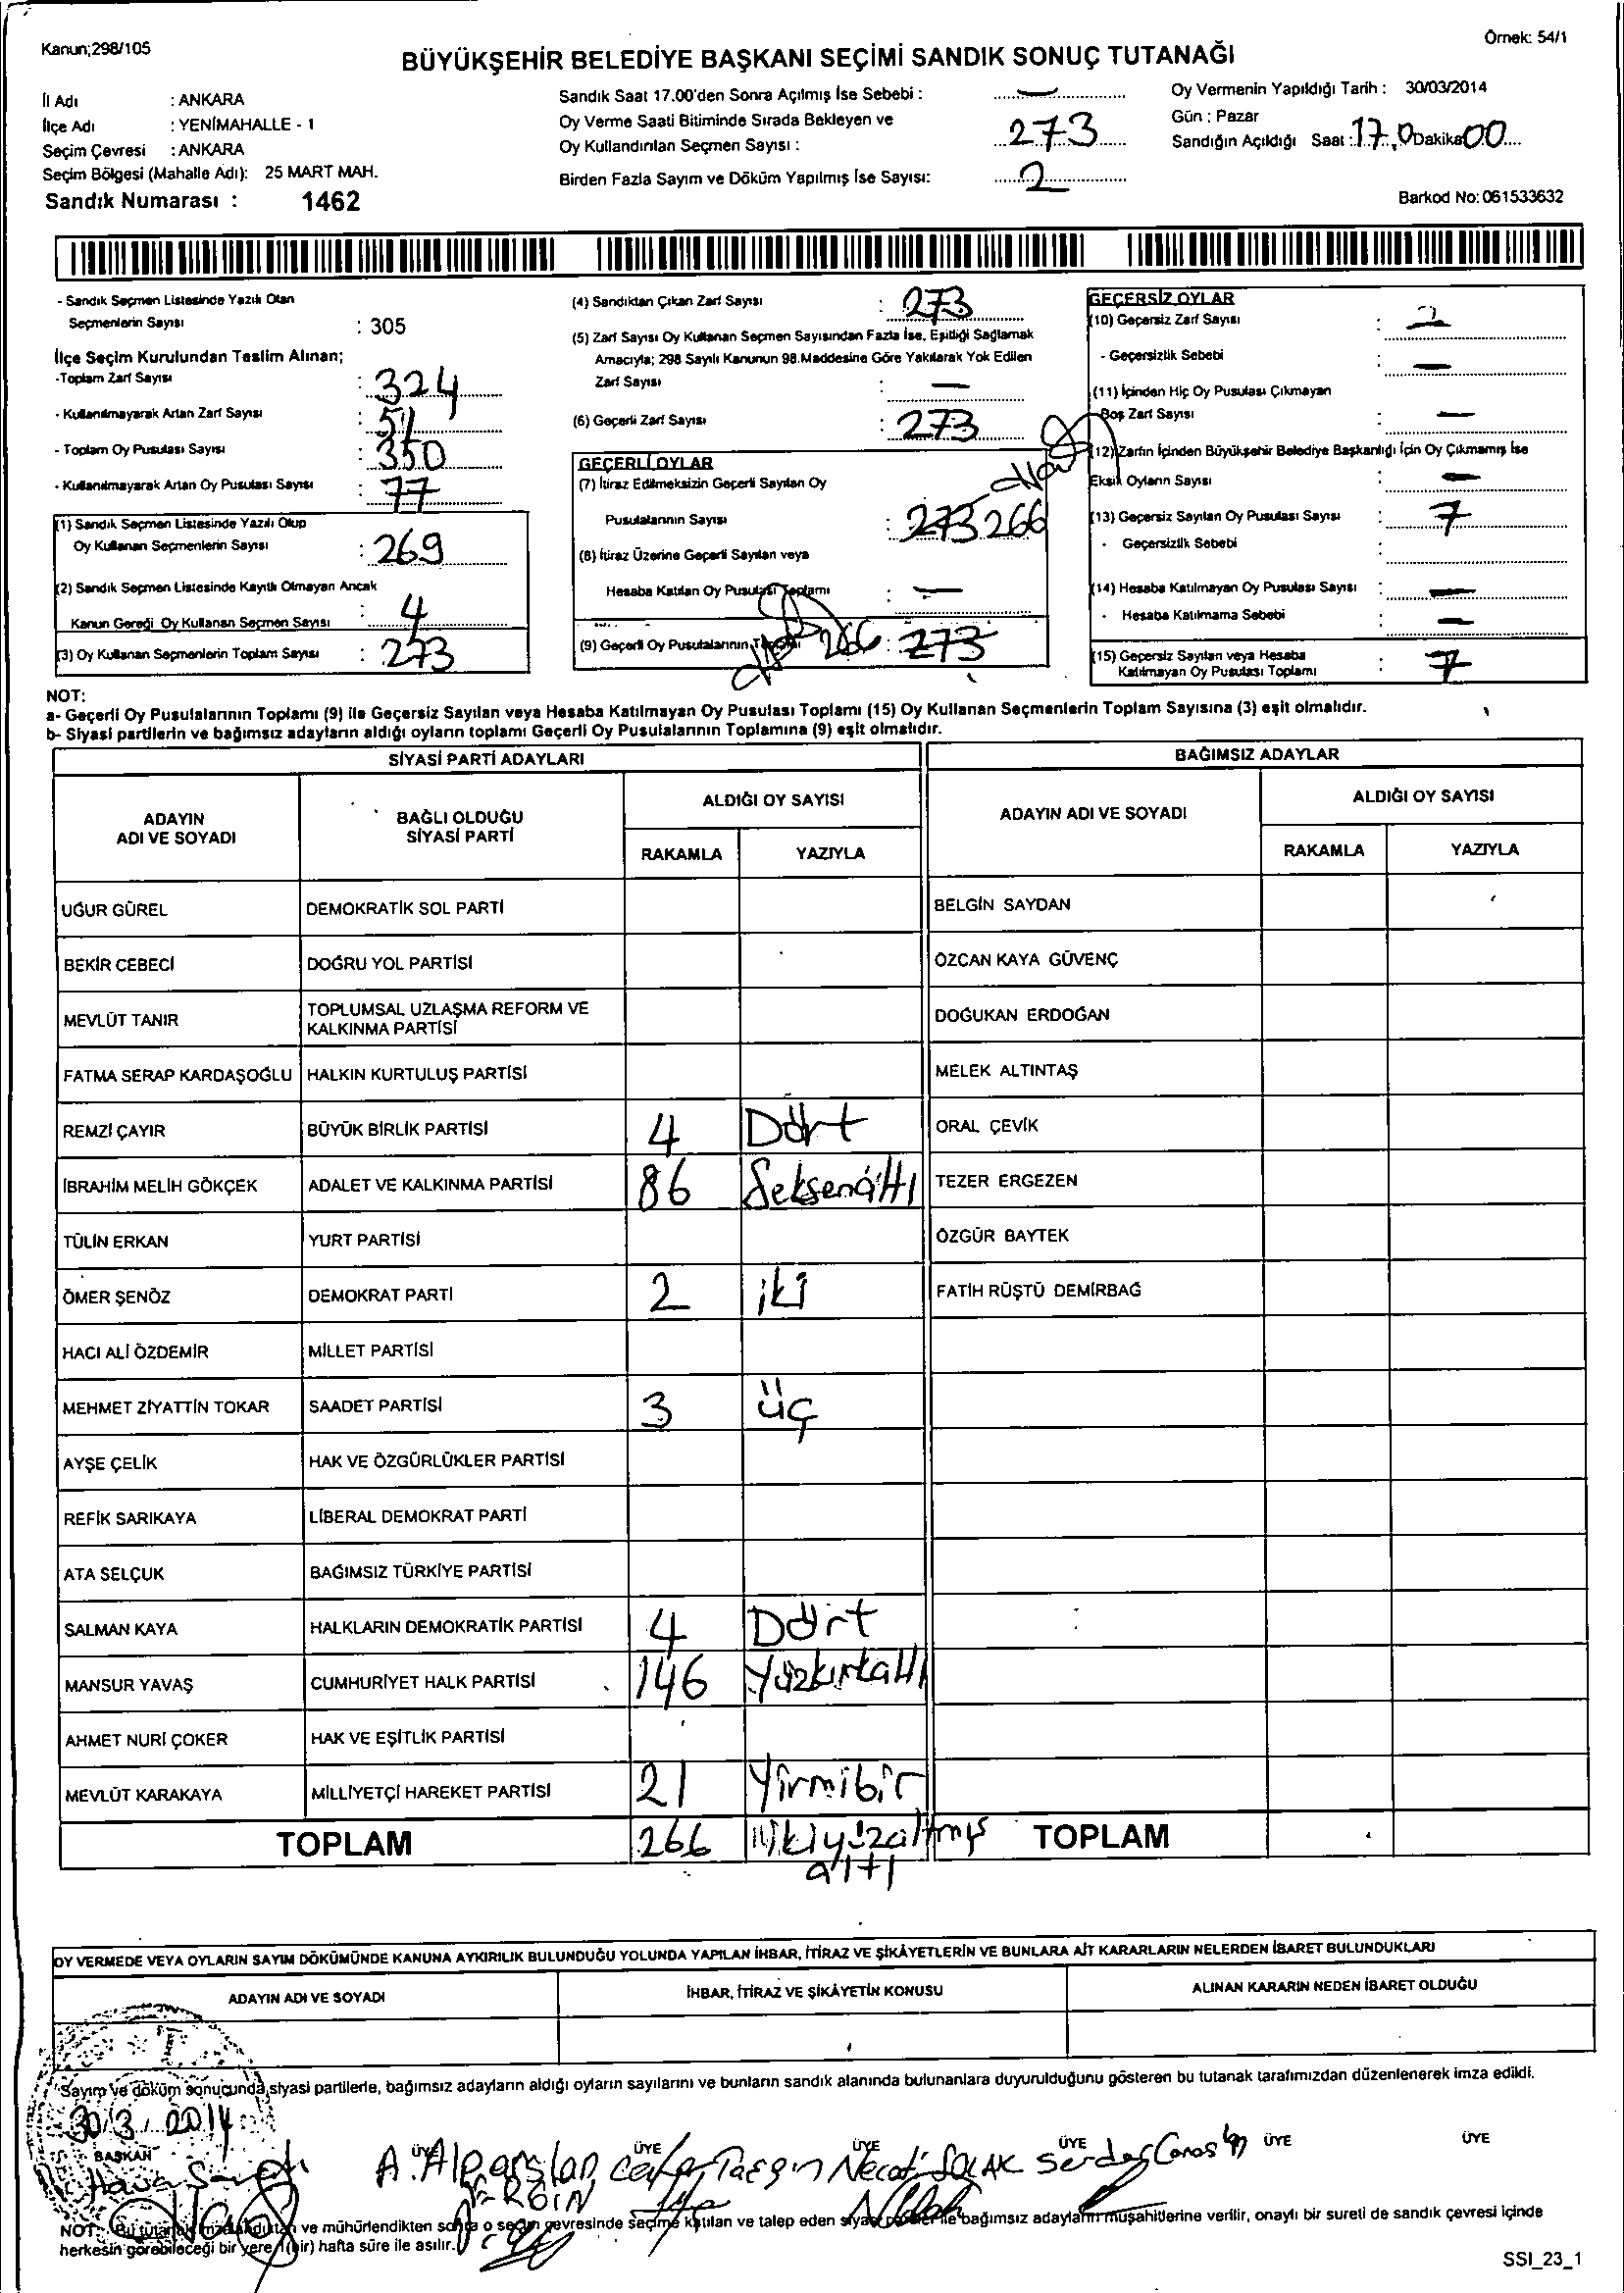 Kanun;298/105
Örnek: 54/1
BÜYÜKŞEHİR BELEDİYE BAŞKANI SEÇİMİ SANDIK SONUÇ TUTANAĞI
İl Adı : ANKARA
İlçe Adı : YENİMAHALLE - 1
Seçim Çevresi : ANKARA
Seçim Bölgesi (Mahalle Adı): 25 MART MAH.
Sandık Numarası : 1462
Sandık Saat 17.00'den Sonra Açılmış İse Sebebi : —
Oy Verme Saati Bitiminde Sırada Bekleyen ve
Oy Kullandırılan Seçmen Sayısı : 273
Birden Fazla Sayım ve Döküm Yapılmış İse Sayısı: 2
Oy Vermenin Yapıldığı Tarih : 30/03/2014
Gün : Pazar
Sandığın Açıldığı Saat : 17.0 Dakika 00
Barkod No: 061533632
- Sandık Seçmen Listesinde Yazılı Olan
Seçmenlerin Sayısı : 305
İlçe Seçim Kurulundan Teslim Alınan;
-Toplam Zarf Sayısı : 324
- Kullanılmayarak Artan Zarf Sayısı : 51
- Toplam Oy Pusulası Sayısı : 350
- Kullanılmayarak Artan Oy Pusulası Sayısı : 77
(1) Sandık Seçmen Listesinde Yazılı Olup
Oy Kullanan Seçmenlerin Sayısı : 269
(2) Sandık Seçmen Listesinde Kayıtlı Olmayan Ancak
Kanun Gereği Oy Kullanan Seçmen Sayısı : 4
(3) Oy Kullanan Seçmenlerin Toplam Sayısı : 273
(4) Sandıktan Çıkan Zarf Sayısı : 273
(5) Zarf Sayısı Oy Kullanan Seçmen Sayısından Fazla İse, Eşitliği Sağlamak
Amacıyla; 298 Sayılı Kanunun 98.Maddesine Göre Yakılarak Yok Edilen
Zarf Sayısı : —
(6) Geçerli Zarf Sayısı : 273
GEÇERLİ OYLAR
(7) İtiraz Edilmeksizin Geçerli Sayılan Oy
Pusulalarının Sayısı : 273 266
(8) İtiraz Üzerine Geçerli Sayılan veya
Hesaba Katılan Oy Pusulası Toplamı : —
(9) Geçerli Oy Pusulalarının Toplamı 266 : 273
GEÇERSİZ OYLAR
(10) Geçersiz Zarf Sayısı : —
- Geçersizlik Sebebi : —
(11) İçinden Hiç Oy Pusulası Çıkmayan
Boş Zarf Sayısı : —
(12) Zarfın İçinden Büyükşehir Belediye Başkanlığı İçin Oy Çıkmamış İse
Eksik Oyların Sayısı : —
(13) Geçersiz Sayılan Oy Pusulası Sayısı : 7
- Geçersizlik Sebebi :
(14) Hesaba Katılmayan Oy Pusulası Sayısı : —
- Hesaba Katılmama Sebebi : —
(15) Geçersiz Sayılan veya Hesaba
Katılmayan Oy Pusulası Toplamı : 7
NOT:
a- Geçerli Oy Pusulalarının Toplamı (9) ile Geçersiz Sayılan veya Hesaba Katılmayan Oy Pusulası Toplamı (15) Oy Kullanan Seçmenlerin Toplam Sayısına (3) eşit olmalıdır.
b- Siyasi partilerin ve bağımsız adayların aldığı oyların toplamı Geçerli Oy Pusulalarının Toplamına (9) eşit olmalıdır.
SİYASİ PARTİ ADAYLARI
BAĞIMSIZ ADAYLAR
ADAYIN ADI VE SOYADI
BAĞLI OLDUĞU SİYASİ PARTİ
ALDIĞI OY SAYISI
RAKAMLA YAZIYLA
ADAYIN ADI VE SOYADI
ALDIĞI OY SAYISI
RAKAMLA YAZIYLA
UĞUR GÜREL DEMOKRATİK SOL PARTİ BELGİN SAYDAN
BEKİR CEBECİ DOĞRU YOL PARTİSİ ÖZCAN KAYA GÜVENÇ
MEVLÜT TANIR TOPLUMSAL UZLAŞMA REFORM VE KALKINMA PARTİSİ DOĞUKAN ERDOĞAN
FATMA SERAP KARDAŞOĞLU HALKIN KURTULUŞ PARTİSİ MELEK ALTINTAŞ
REMZİ ÇAYIR BÜYÜK BİRLİK PARTİSİ 4 Dört ORAL ÇEVİK
İBRAHİM MELİH GÖKÇEK ADALET VE KALKINMA PARTİSİ 86 Seksenaltı TEZER ERGEZEN
TÜLİN ERKAN YURT PARTİSİ ÖZGÜR BAYTEK
ÖMER ŞENÖZ DEMOKRAT PARTİ 2 iki FATİH RÜŞTÜ DEMİRBAĞ
HACI ALİ ÖZDEMİR MİLLET PARTİSİ
MEHMET ZİYATTİN TOKAR SAADET PARTİSİ 3 üç
AYŞE ÇELİK HAK VE ÖZGÜRLÜKLER PARTİSİ
REFİK SARIKAYA LİBERAL DEMOKRAT PARTİ
ATA SELÇUK BAĞIMSIZ TÜRKİYE PARTİSİ
SALMAN KAYA HALKLARIN DEMOKRATİK PARTİSİ 4 Dört
MANSUR YAVAŞ CUMHURİYET HALK PARTİSİ 146 Yüzkırkaltı
AHMET NURİ ÇOKER HAK VE EŞİTLİK PARTİSİ
MEVLÜT KARAKAYA MİLLİYETÇİ HAREKET PARTİSİ 21 Yirmibir
TOPLAM 266 ikiyüzaltmış altı TOPLAM
OY VERMEDE VEYA OYLARIN SAYIM DÖKÜMÜNDE KANUNA AYKIRILIK BULUNDUĞU YOLUNDA YAPILAN İHBAR, İTİRAZ VE ŞİKÂYETLERİN VE BUNLARA AİT KARARLARIN NELERDEN İBARET BULUNDUKLARI
ADAYIN ADI VE SOYADI
İHBAR, İTİRAZ VE ŞİKÂYETİN KONUSU
ALINAN KARARIN NEDEN İBARET OLDUĞU
Sayım ve döküm sonucunda siyasi partilerle, bağımsız adayların aldığı oyların sayılarını ve bunların sandık alanında bulunanlara duyurulduğunu gösteren bu tutanak tarafımızdan düzenlenerek imza edildi.
30/3/2014
BAŞKAN ÜYE ÜYE ÜYE ÜYE ÜYE ÜYE
A. Alparslan Necati Serdar
NOT: Bu tutanak imzalandıktan ve mühürlendikten sonra o seçim çevresinde seçime katılan ve talep eden siyasi partiler ile bağımsız adayların müşahitlerine verilir, onaylı bir sureti de sandık çevresi içinde
herkesin görebileceği bir yere 1 (bir) hafta süre ile asılır.
SSI_23_1